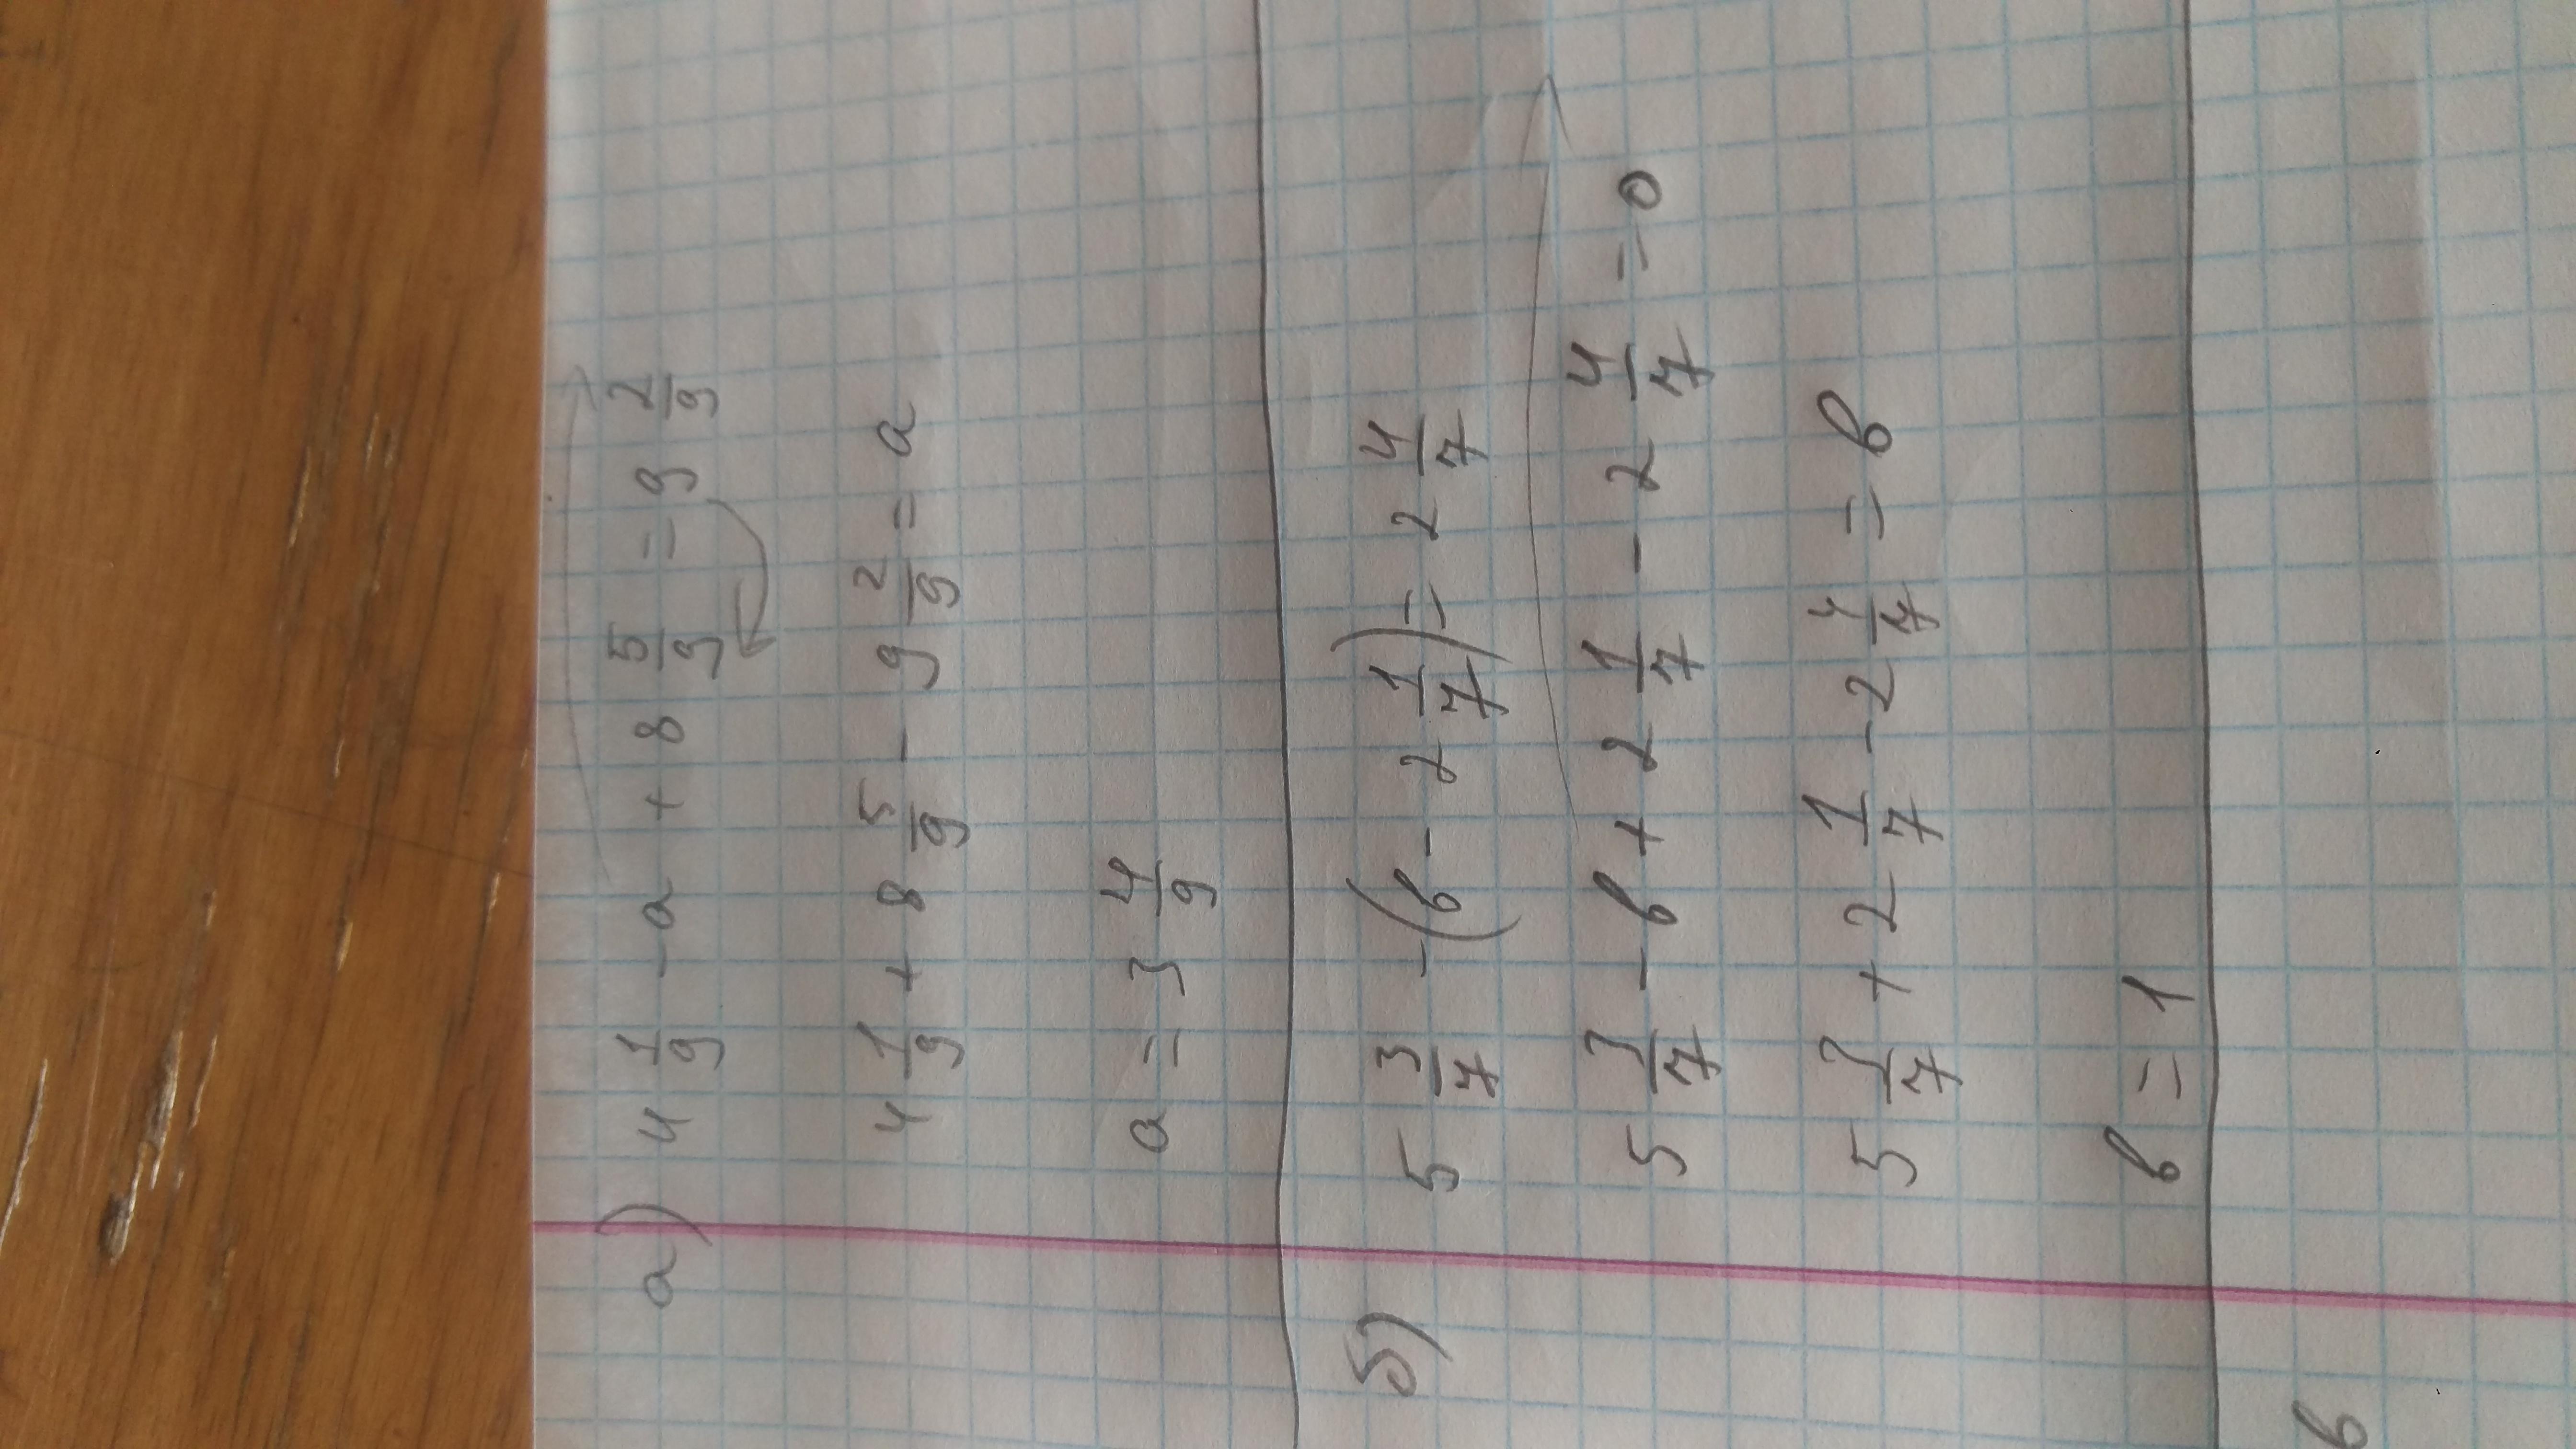 а) 4 1/9 - a + 8 5/9 = 9 2/9
4 1/9 + 8 5/9 - 9 2/9 = a
a = 3 4/9
б) 5 3/7 - (в - 2 1/7) = 2 4/7
5 3/7 - в + 2 1/7 - 2 4/7 = 0
5 3/7 + 2 1/7 - 2 4/7 = в
в = 1
в